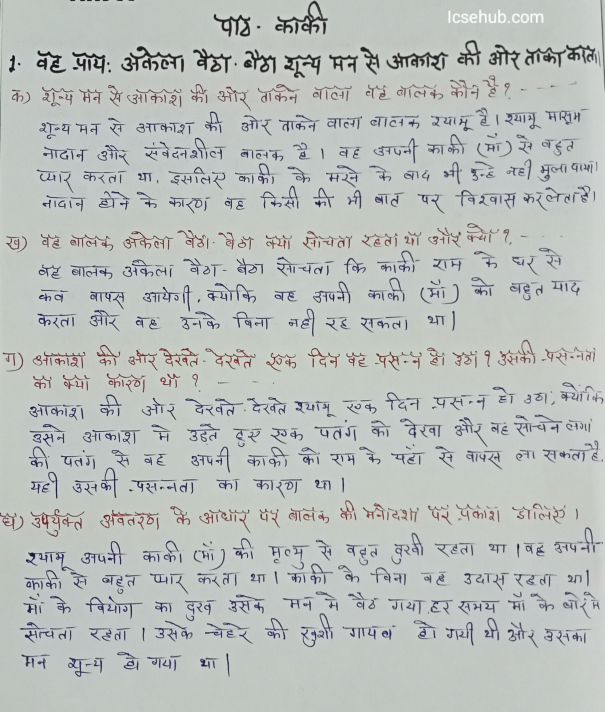 Icsehub.com
पाठ - काकी
1. वह प्राय: अकेला बैठा - बैठा शून्य मन से आकाश की ओर ताका करता।
क) शून्य मन से आकाश की ओर ताकने वाला वह बालक कौन है ? - - - -
शून्य मन से आकाश की ओर ताकने वाला बालक श्यामू है। श्यामू मासूम
नादान और संवेदनशील बालक है। वह अपनी काकी (माँ) से बहुत
प्यार करता था, इसलिए काकी के मरने के बाद भी इन्हे नही भुला पाया।
नादान होने के कारण वह किसी की भी बात पर विश्वास कर लेता है।
ख) वह बालक अकेला बैठा - बैठा क्या सोचता रहता था और क्यो ? - - -
वह बालक अकेला बैठा - बैठा सोचता कि काकी राम के घर से
कब वापस आयेगी, क्योकि वह अपनी काकी (माँ) को बहुत याद
करता और वह उनके बिना नही रह सकता था।
ग) आकाश की ओर देखते - देखते एक दिन वह प्रसन्न हो उठा ? उसकी प्रसन्नता
का क्या कारण था ? - - -
आकाश की ओर देखते - देखते श्यामू एक दिन प्रसन्न हो उठा, क्योंकि
उसने आकाश मे उड़ते हुए एक पतंग को देखा और वह सोचने लगा
की पतंग से वह अपनी काकी को राम के यहाँ से वापस ला सकता है,
यही उसकी प्रसन्नता का कारण था।
घ) उपर्युक्त अवतरण के आधार पर बालक की मनोदशा पर प्रकाश डालिए।
श्यामू अपनी काकी (माँ) की मृत्यु से बहुत दुखी रहता था। वह अपनी
काकी से बहुत प्यार करता था। काकी के बिना वह उदास रहता था।
माँ के वियोग का दुख उसके मन मे बैठ गया हर समय माँ के बारे मे
सोचता रहता। उसके चेहरे की खुशी गायब हो गयी थी और उसका
मन शून्य हो गया था।